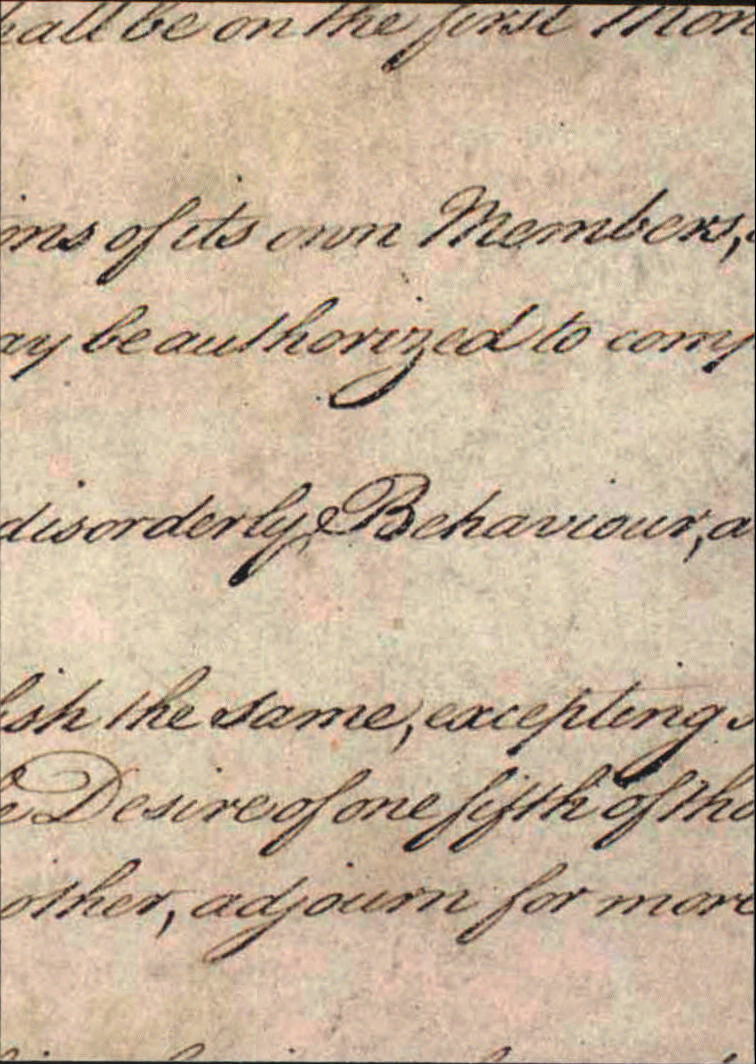 hall be on the first Mon
ons of its own Members,
ay be authorized to comp
disorderly Behaviour, a
lish the same, excepting s
e Desire of one fifth of tho
other, adjourn for more